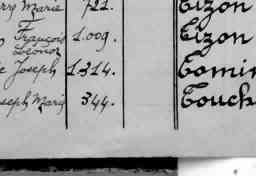 rry Marie 721. Tizon
François
Éléonor 1.009. Tizon
e Joseph 1.314. Tomin
seph Marie 344. Touch